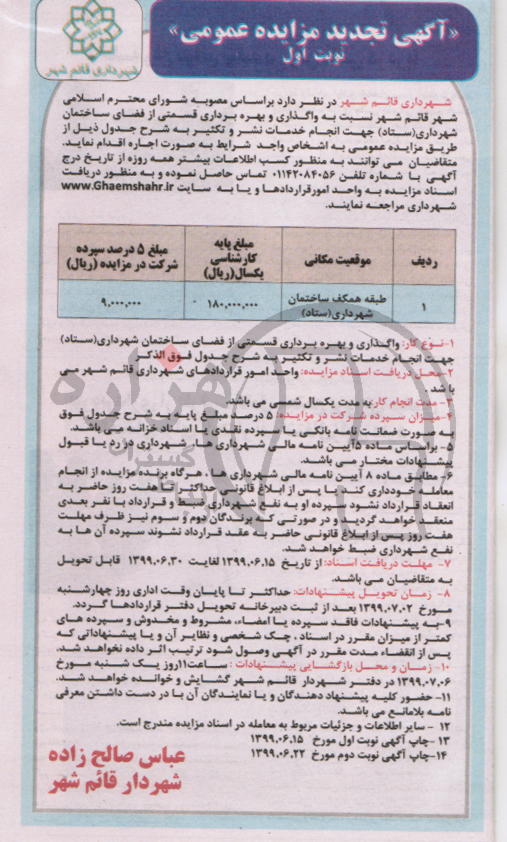 «آگهی تجدید مزایده عمومی»
نوبت اول
شهرداری قائم شهر
شهرداری قائم شهر در نظر دارد براساس مصوبه شورای محترم اسلامی
شهر قائم شهر نسبت به واگذاری و بهره برداری قسمتی از فضای ساختمان
شهرداری(ستاد) جهت انجام خدمات نشر و تکثیر به شرح جدول ذیل از
طریق مزایده عمومی به اشخاص واجد شرایط به صورت اجاره اقدام نماید.
متقاضیان می توانند به منظور کسب اطلاعات بیشتر همه روزه از تاریخ درج
آگهی با شماره تلفن ۰۱۱۴۲۰۸۴۰۵۶ تماس حاصل نموده و به منظور دریافت
اسناد مزایده به واحد امورقراردادها و یا به سایت www.Ghaemshahr.ir
شهرداری مراجعه نمایند.
ردیف موقعیت مکانی مبلغ پایه کارشناسی یکسال(ریال) مبلغ ۵ درصد سپرده شرکت در مزایده (ریال)
۱ طبقه همکف ساختمان شهرداری(ستاد) ۱۸۰,۰۰۰,۰۰۰ ۹,۰۰۰,۰۰۰
۱-نوع کار: واگذاری و بهره برداری قسمتی از فضای ساختمان شهرداری(ستاد)
جهت انجام خدمات نشر و تکثیر به شرح جدول فوق الذکر
۲-محل دریافت اسناد مزایده: واحد امور قراردادهای شهرداری قائم شهر می
با شد
۳- مدت انجام کار:به مدت یکسال شمسی می باشد.
۴-میزان سپرده شرکت در مزایده: ۵ درصد مبلغ پایه به شرح جدول فوق
به صورت ضمانت نامه بانکی یا سپرده نقدی یا اسناد خزانه می باشد.
۵- براساس ماده ۵آیین نامه مالی شهرداری ها، شهرداری در رد یا قبول
پیشنهادات مختار می باشد.
۶- مطابق ماده ۸ آیین نامه مالی شهرداری ها ، هرگاه برنده مزایده از انجام
معامله خودداری کند یا پس از ابلاغ قانونی حداکثر تا هفت روز حاضر به
انعقاد قرارداد نشود سپرده او به نفع شهرداری ضبط و قرارداد با نفر بعدی
منعقد خواهد گردید و در صورتی که برندگان دوم و سوم نیز ظرف مهلت
هفت روز پس از ابلاغ قانونی حاضر به عقد قرارداد نشوند سپرده آن ها به
نفع شهرداری ضبط خواهد شد.
۷- مهلت دریافت اسناد: از تاریخ ۱۳۹۹،۰۶،۱۵ لغایت ۱۳۹۹،۰۶،۳۰ قابل تحویل
به متقاضیان می باشد.
۸- زمان تحویل پیشنهادات: حداکثر تا پایان وقت اداری روز چهارشنبه
مورخ ۱۳۹۹،۰۷،۰۲ بعد از ثبت دبیرخانه تحویل دفتر قراردادها گردد.
۹-به پیشنهادات فاقد سپرده یا امضاء، مشروط و مخدوش و سپرده های
کمتر از میزان مقرر در اسناد ، چک شخصی و نظایر آن و یا پیشنهاداتی که
پس از انقضاء مدت مقرر در آگهی وصول شود ترتیب اثر داده نخواهد شد.
۱۰- زمان و محل بازگشایی پیشنهادات : ساعت۱۱روز یک شنبه مورخ
۱۳۹۹،۰۷،۰۶ در دفتر شهردار قائم شهر گشایش و خوانده خواهد شد.
۱۱- حضور کلیه پیشنهاد دهندگان و یا نمایندگان آن با در دست داشتن معرفی
نامه بلامانع می باشد.
۱۲ - سایر اطلاعات و جزئیات مربوط به معامله در اسناد مزایده مندرج است.
۱۳ -چاپ آگهی نوبت اول مورخ ۱۳۹۹،۰۶،۱۵
۱۴-چاپ آگهی نوبت دوم مورخ ۱۳۹۹،۰۶،۲۲
عباس صالح زاده
شهردار قائم شهر
هزاره